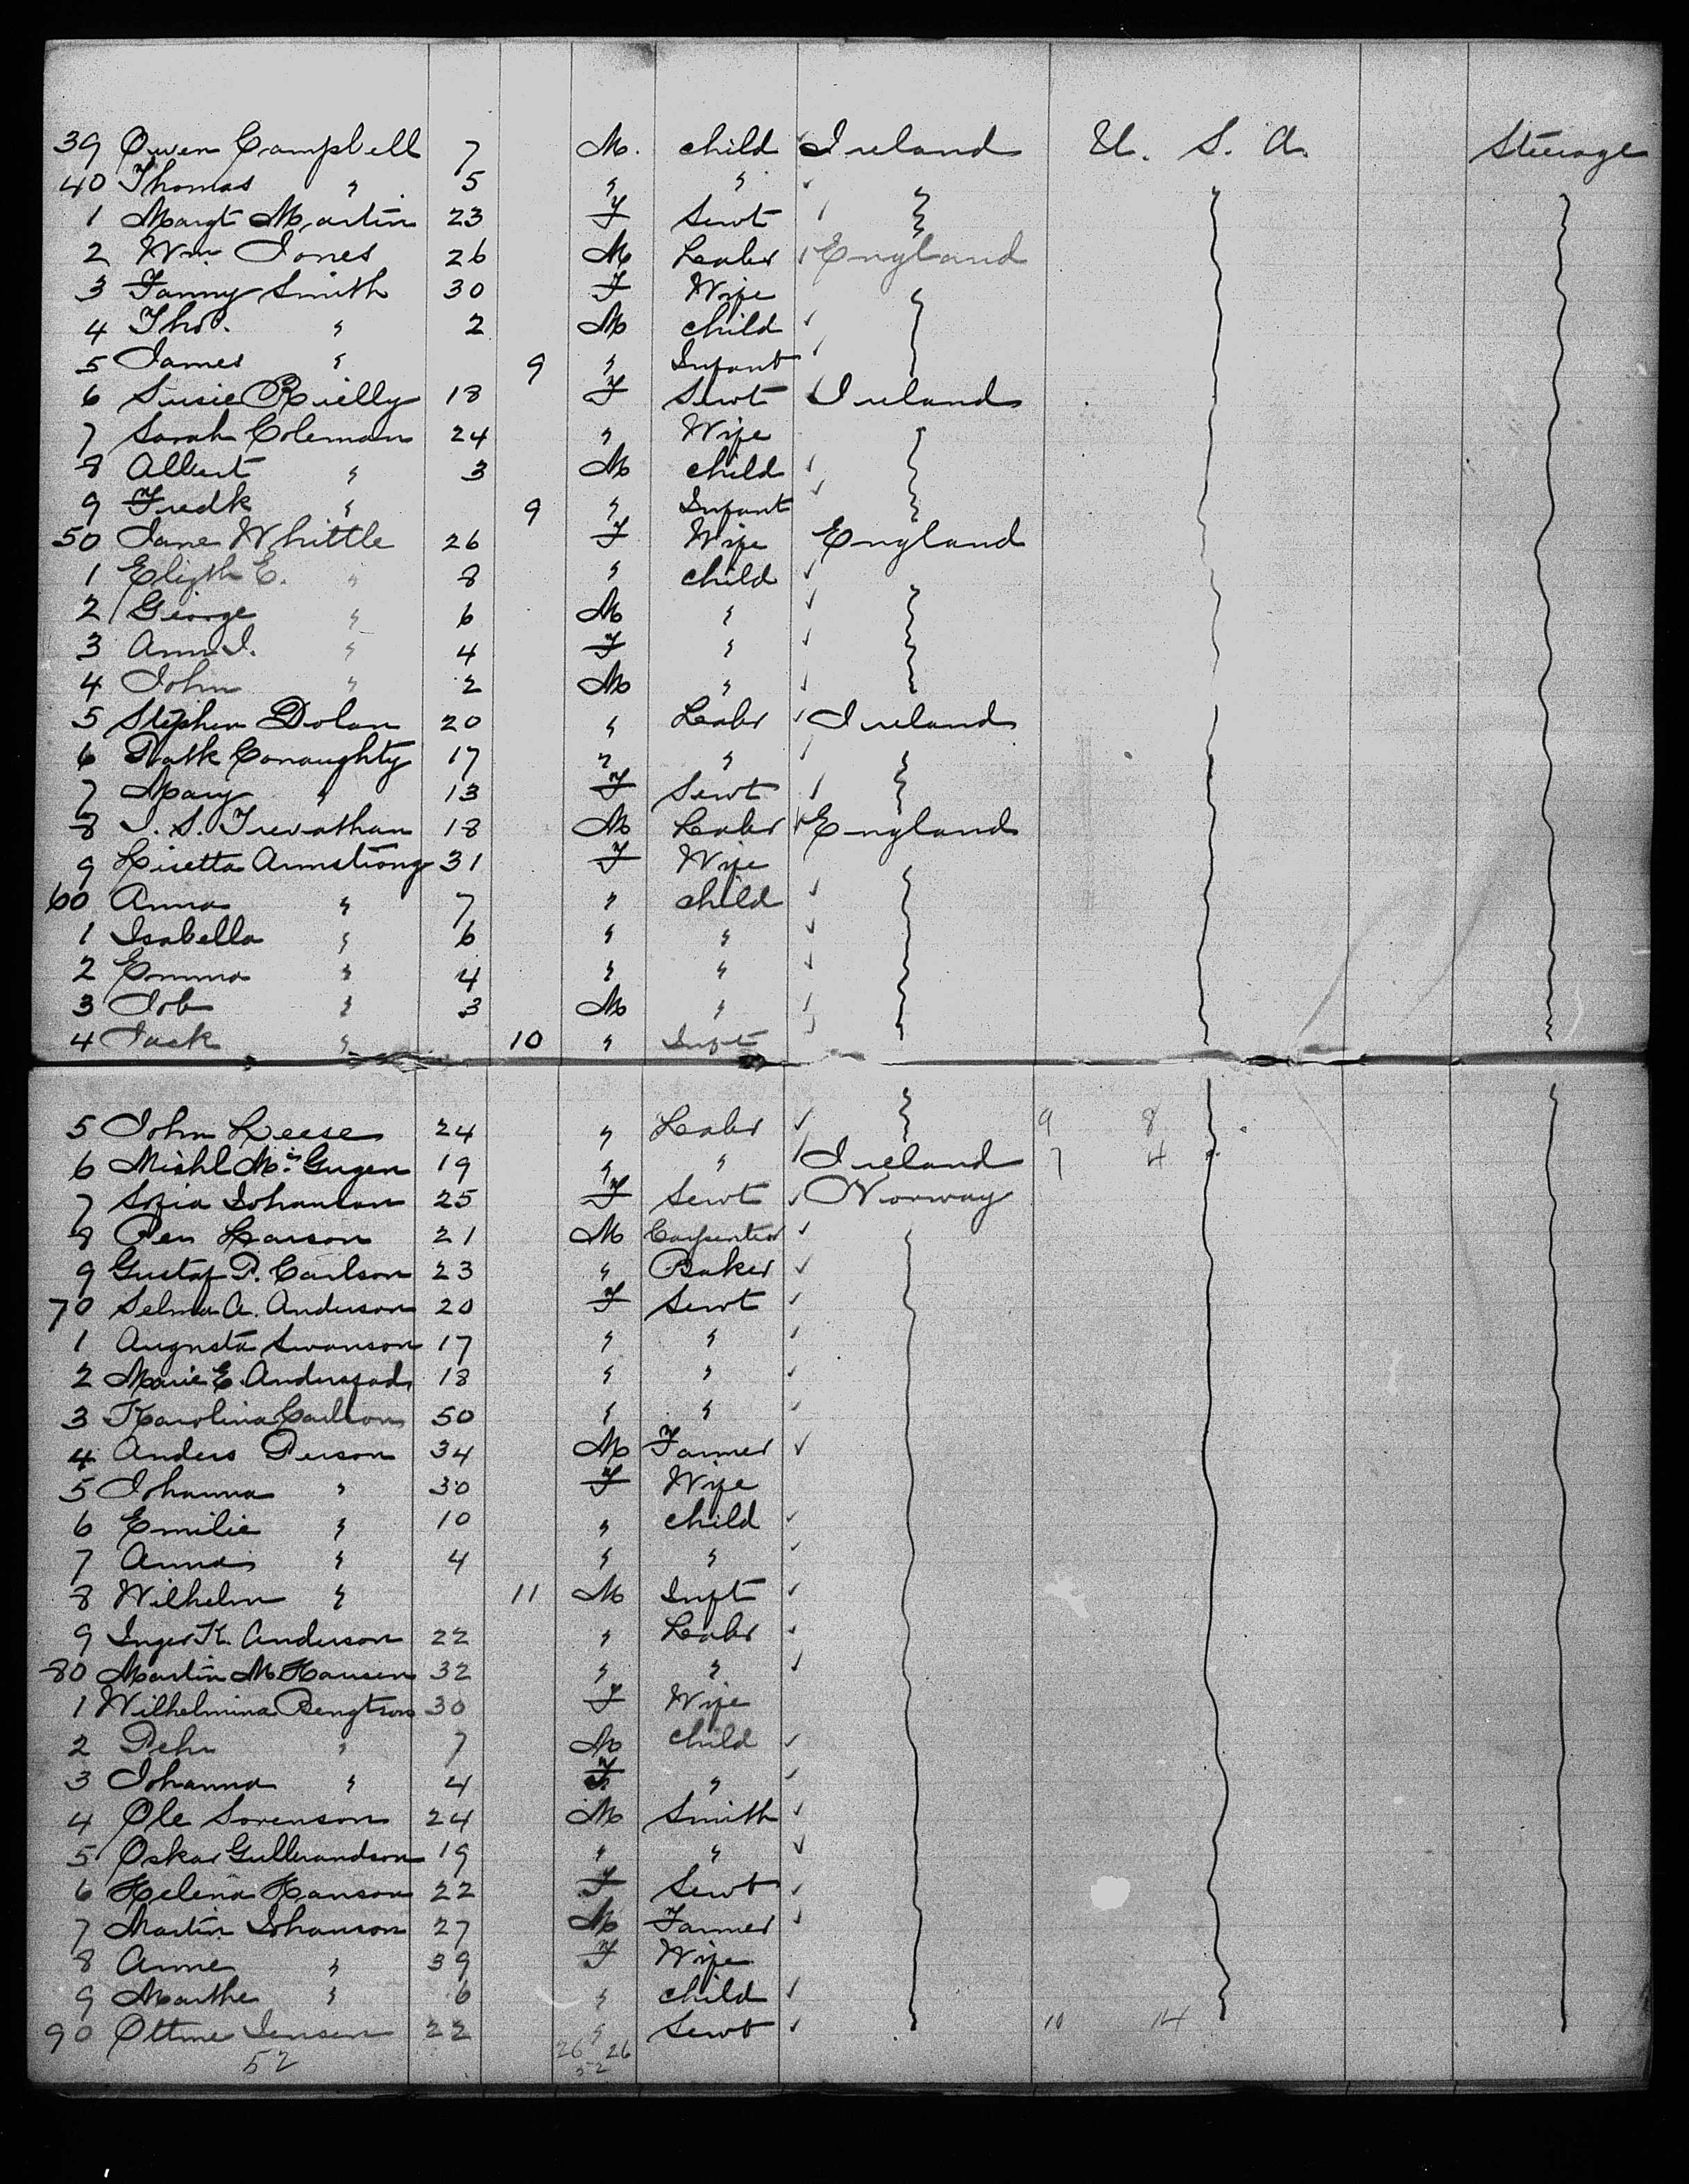 39 Owen Campbell 7 M. child ✓ Ireland U. S. A. Steerage
40 Thomas " 5 " " ✓ "
1 Margt Martin 23 F Servt ✓ "
2 Wm Jones 26 M Labr ✓ England
3 Fanny Smith 30 F Wife
4 Thos. " 2 M child ✓
5 James " 9 " Infant ✓
6 Susie Rielly 18 F Servt ✓ Ireland
7 Sarah Coleman 24 " Wife
8 Albert " 3 M child ✓
9 Fredk " 9 " Infant ✓
50 Jane Whittle 26 F Wife England
1 Elizth E. " 8 " child ✓
2 George " 6 M " ✓
3 Ann J. " 4 F " ✓
4 John " 2 M " ✓
5 Stephen Dolan 20 " Labr ✓ Ireland
6 Patk Conaughty 17 " " ✓
7 Mary " 13 F Servt ✓
8 J. S. Trevathan 18 M Labr ✓ England
9 Lisetta Armstrong 31 F Wife
60 Anna " 7 " child ✓
1 Isabella " 6 " " ✓
2 Emma " 4 " " ✓
3 Job " 3 M " ✓
4 Jack " 10 " Inft ✓
5 John Leese 24 " Labr ✓ 9 8
6 Michl 19 " " ✓ Ireland 7 4
7 Sofia 25 F Servt ✓ Norway
8 Per Larson 21 M Carpenter ✓
9 Gustaf P. Carlson 23 " Baker ✓
70 Selma A. Anderson 20 F Servt ✓
1 Augusta Swanson 17 " " ✓
2 Marie E. 18 " " ✓
3 Karolina Carlson 50 " " ✓
4 Anders Person 34 M Farmer ✓
5 Johanna " 30 F Wife
6 Emilie " 10 " child ✓
7 Anna " 4 " " ✓
8 Wilhelm " 11 M Inft ✓
9 Inger K. Anderson 22 " Labr ✓
80 Martin M Hansen 32 " " ✓
1 Wilhelmina Bengtson 30 F Wife
2 Pehr " 7 M child ✓
3 Johanna " 4 F " ✓
4 Ole Sorenson 24 M Smith ✓
5 Oskar 19 " " ✓
6 Helena Hanson 22 F Servt ✓
7 Martin Johanson 27 M Farmer ✓
8 Anne " 39 F Wife
9 Marthe " 6 " child ✓
90 Jensen 22 " Servt ✓ 10 14
52 26 26
52